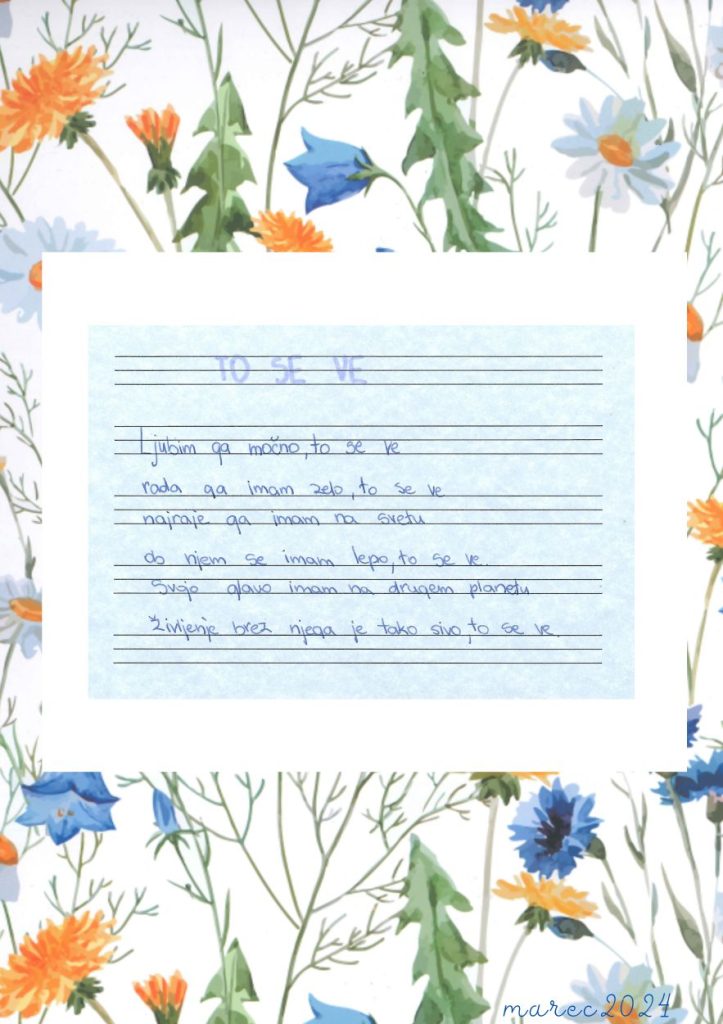 TO SE VE
Ljubim ga močno, to se ve
rada ga imam zelo, to se ve
najraje ga imam na svetu
ob njem se imam lepo, to se ve.
Svojo glavo imam na drugem planetu
Življenje brez njega je tako sivo, to se ve.
marec2024